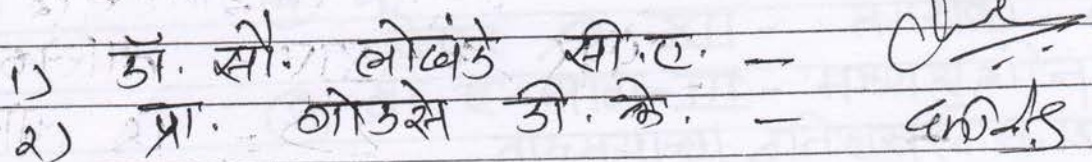 1) डॉ. सौ. लोखंडे सी.ए. —
२) प्रा. गोडसे डी. के. —